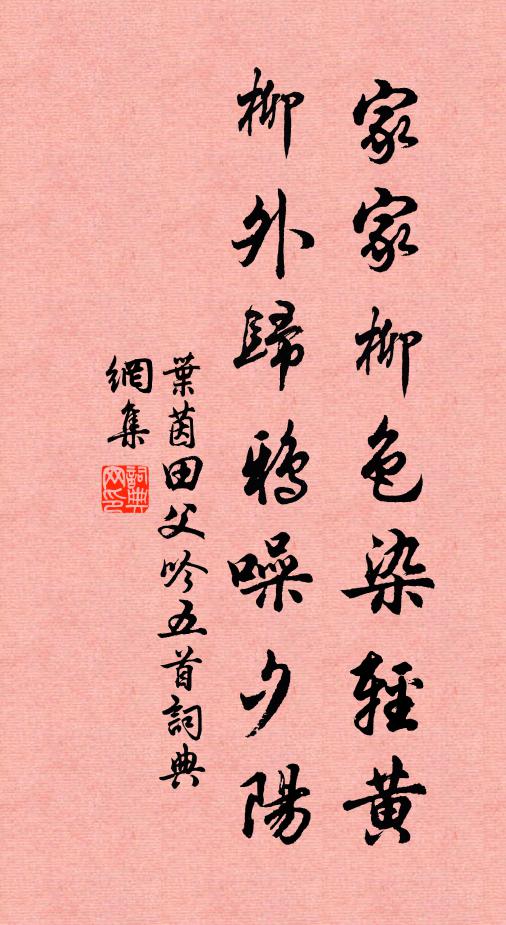 家家柳色染輕黃
柳外歸鴉噪夕陽
葉茵田父吟五首詞典
網集
詞典網印